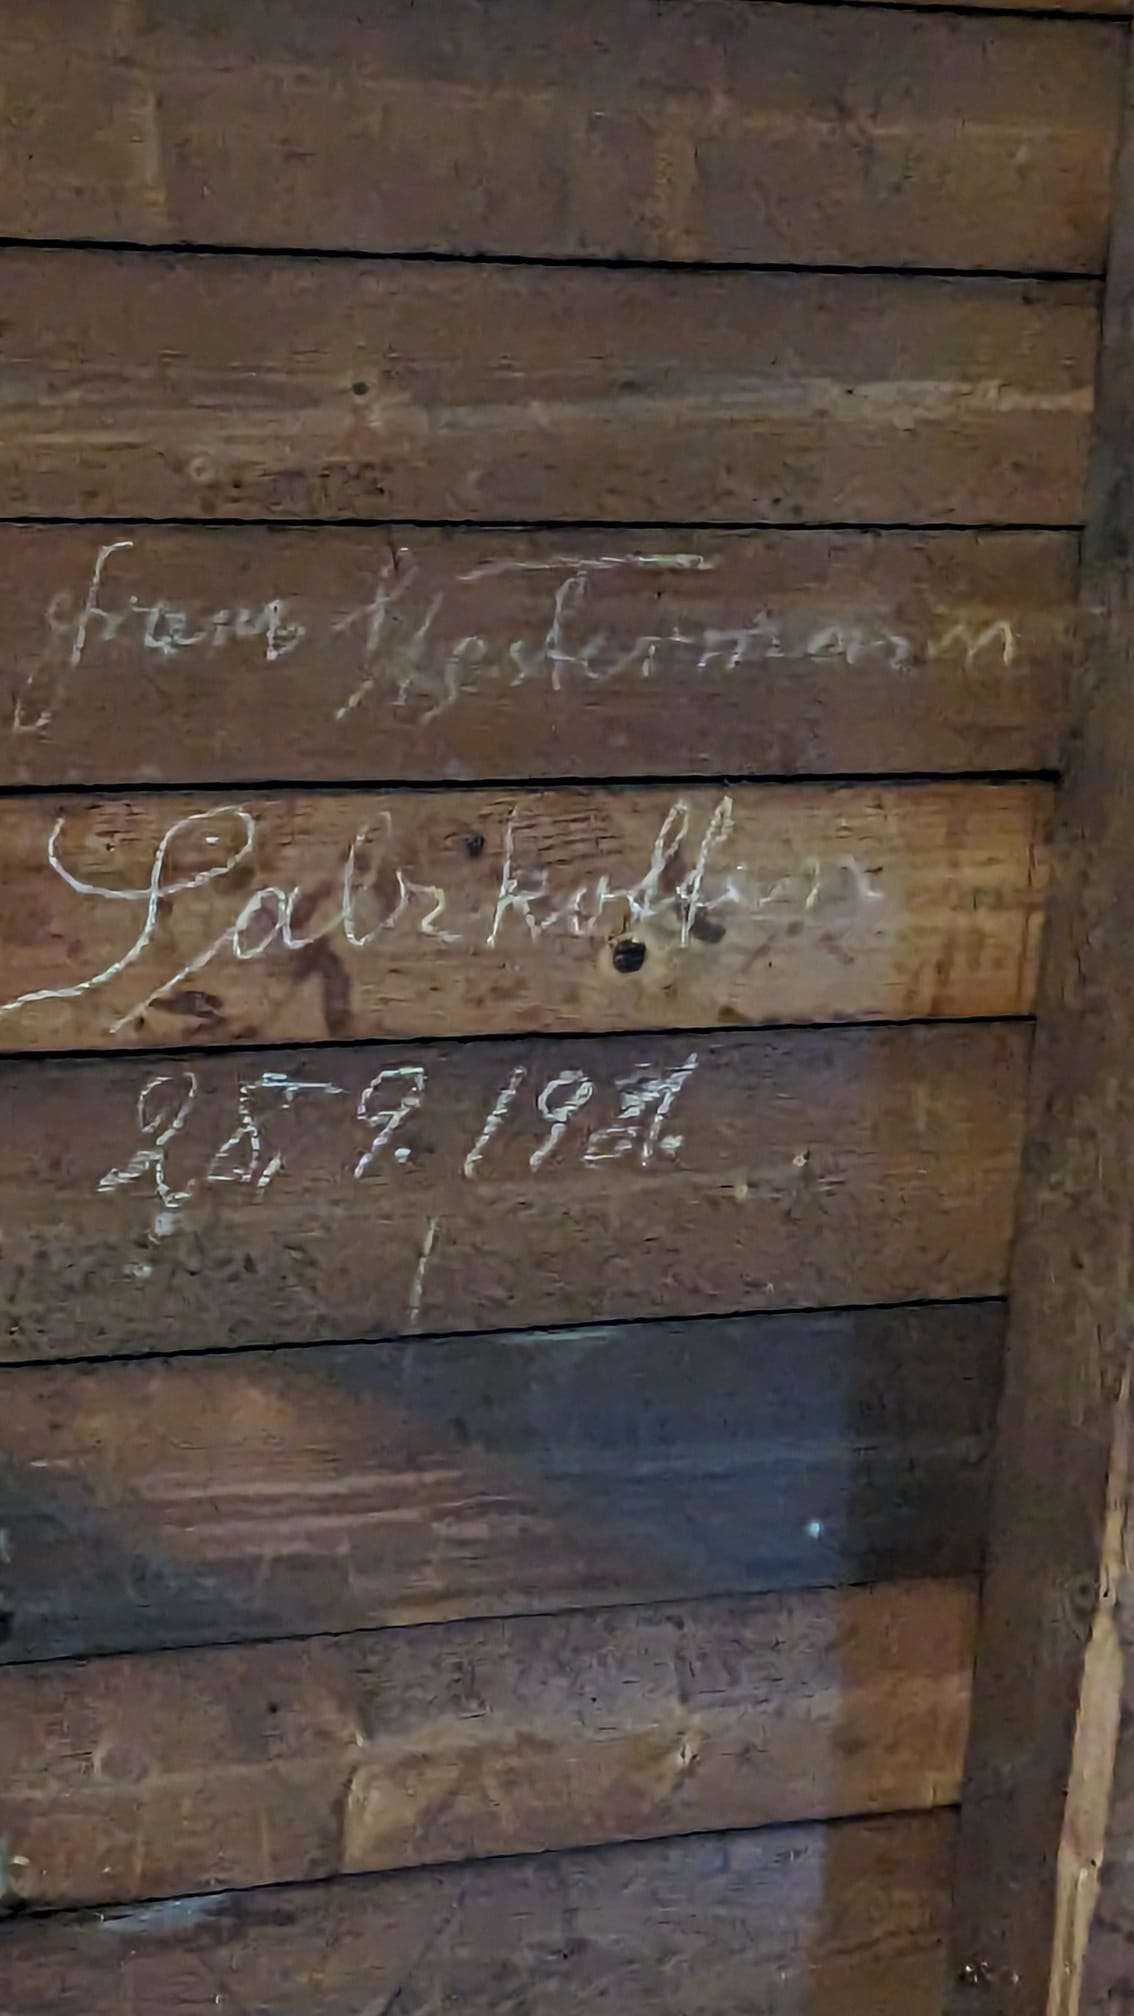 Franz Westermann
Salzkotten
25. 9. 19